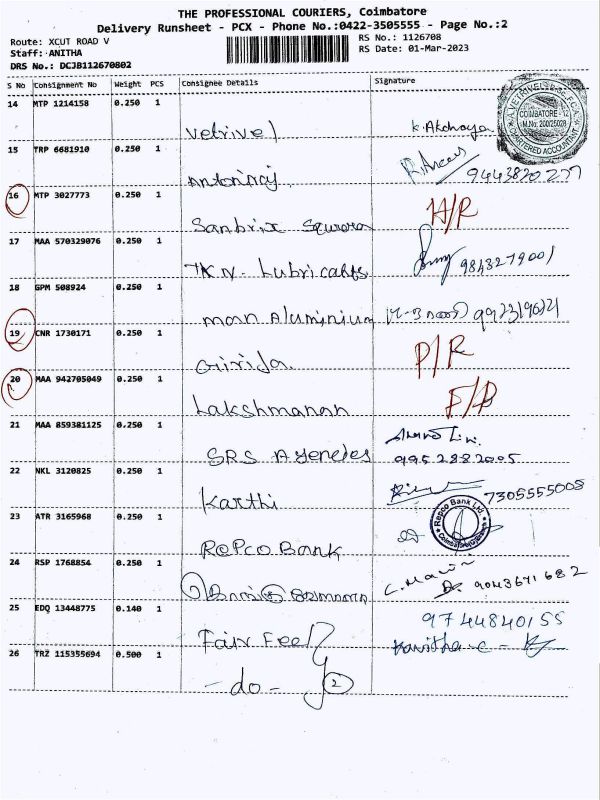 THE PROFESSIONAL COURIERS, Coimbatore
Delivery Runsheet - PCX - Phone No.:0422-3505555 - Page No.:2
Route: XCUT ROAD V
RS No.: 1126708
Staff: ANITHA
RS Date: 01-Mar-2023
DRS No.: DCJB112670802
S No Consignment No Weight PCS Consignee Details Signature
14 MTP 1214158 0.250 1
Vetrivel K. Akchaya
A.VETRIVEL COIMBATORE - 12 M.No: 200/25028 CHARTERED ACCOUNTANT
15 TRP 6681910 0.250 1
Antonraj 9443820277
16 MTP 3027773 0.250 1
Sanbrix Square H/R
17 MAA 570329076 0.250 1
TKN. Lubricants 9843279001
18 GPM 508924 0.250 1
man Aluminium
19 CNR 1730171 0.250 1
Girija. P/R
20 MAA 942705049 0.250 1
Lakshmanan F/D
21 MAA 859381125 0.250 1
SRS Agencies 9952882005
22 NKL 3120825 0.250 1
Karthi 7305555008
23 ATR 3165968 0.250 1
Repco Bank
Repco Bank Ltd.
24 RSP 1768854 0.250 1
9043671682
25 EDQ 13448775 0.140 1
Fair Feel 9744840155
Kavitha - C -
26 TRZ 115355694 0.500 1
- do - 2